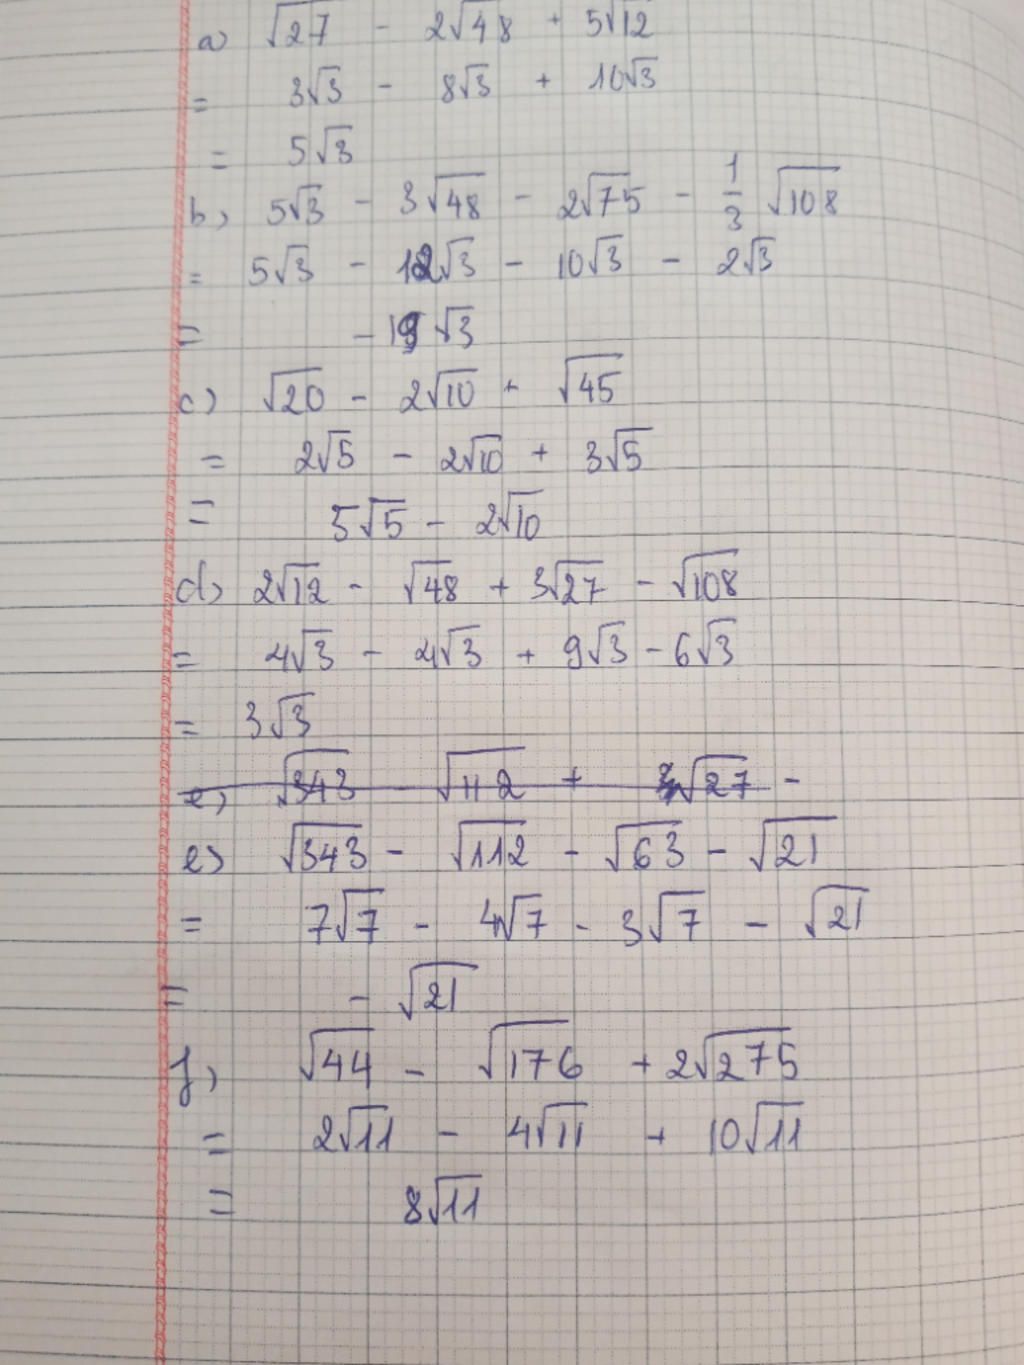 a) √27 - 2√48 + 5√12
= 3√3 - 8√3 + 10√3
= 5√3
b) 5√3 - 3√48 - 2√75 - 1/3 √108
= 5√3 - 12√3 - 10√3 - 2√3
= - 19√3
c) √20 - 2√10 + √45
= 2√5 - 2√10 + 3√5
= 5√5 - 2√10
d) 2√12 - √48 + 3√27 - √108
= 4√3 - 4√3 + 9√3 - 6√3
= 3√3
e) √343 - √112 + 3√27 -
e) √343 - √112 - √63 - √21
= 7√7 - 4√7 - 3√7 - √21
= - √21
f) √44 - √176 + 2√275
= 2√11 - 4√11 + 10√11
= 8√11